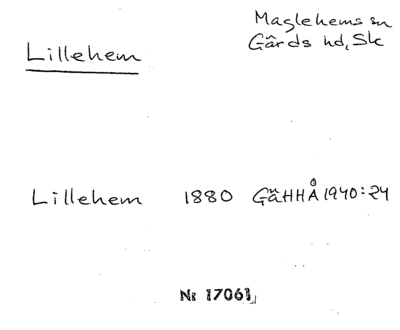 Maglehems sn
Gärds hd, Sk
Lillehem
Lillehem 1880 GäHHÅ 1940:24
Nr 17061